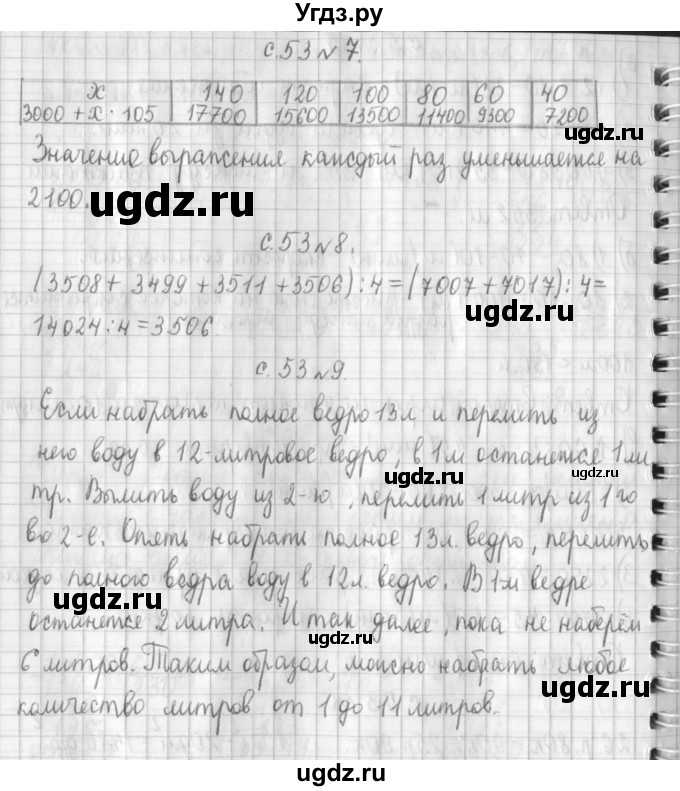 Угдз.ру
с.53 №7.
x 140 120 100 80 60 40
3000 + x · 105 17700 15600 13500 11400 9300 7200
Значение выражения каждый раз уменьшается на
2100.
ugdz.ru
ugdz.ru
с.53 №8.
(3508 + 3499 + 3511 + 3506) : 4 = (7007 + 7017) : 4 =
ugdz.ru
14024 : 4 = 3506.
с.53 №9.
Если набрать полное ведро 13л и перелить из
него воду в 12-литровое ведро, в 1м останется 1 ли
ugdz.ru
ugdz.ru
тр. Вылить воду из 2-го, перелить 1 литр из 1 го
во 2-е. Опять набрать полное 13л. ведро, перелить
до полного ведра воду в 12л. ведро. В 1м ведре
ugdz.ru
останется 2 литра. И так далее, пока не наберём
ugdz.ru
6 литров. Таким образом, можно набрать любое
ugdz.ru
количество литров от 1 до 11 литров.
ugdz.ru
ugdz.ru